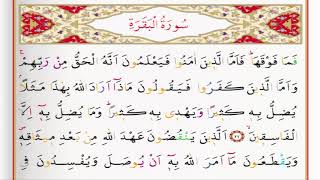 سُورَةُ الْبَقَرَةِ
فَمَا فَوْقَهَاۜ فَاَمَّا الَّذ۪ينَ اٰمَنُوا فَيَعْلَمُونَ اَنَّهُ الْحَقُّ مِنْ رَبِّهِمْۚ
وَاَمَّا الَّذ۪ينَ كَفَرُوا فَيَقُولُونَ مَاذَٓا اَرَادَ اللّٰهُ بِهٰذَا مَثَلًاۢ
يُضِلُّ بِه۪ كَث۪يرًاۙ وَيَهْد۪ي بِه۪ كَث۪يرًاۜ وَمَا يُضِلُّ بِه۪ٓ اِلَّا
الْفَاسِق۪ينَۙ ﴿٢٦﴾ اَلَّذ۪ينَ يَنْقُضُونَ عَهْدَ اللّٰهِ مِنْ بَعْدِ م۪يثَاقِه۪ۖ
وَيَقْطَعُونَ مَٓا اَمَرَ اللّٰهُ بِه۪ٓ اَنْ يُوصَلَ وَيُفْسِدُونَ فِي